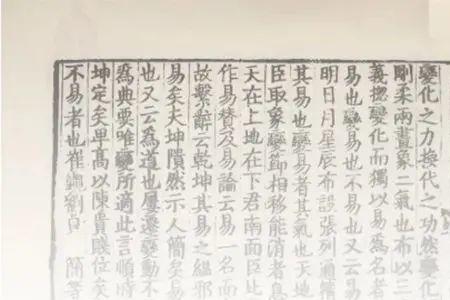 變化之力換代之功然變化
剛柔兩畫象二氣也布以三
義揔變化而獨以易為名者
易也變易也不易也又云易
明日月星辰布設張列通情
其易也變易者其氣也天地
臣取象變節相移能消者息
天在上地在下君南面臣北
作易賛及易論云易一名而
故繫辭云乾坤其易之緼邪
易矣夫坤隤然示人簡矣易
也又云為道也屢遷變動不
為典要唯變所適此言順時
坤定矣卑高以陳貴賤位矣
不易者也崔覲劉貞 簡等